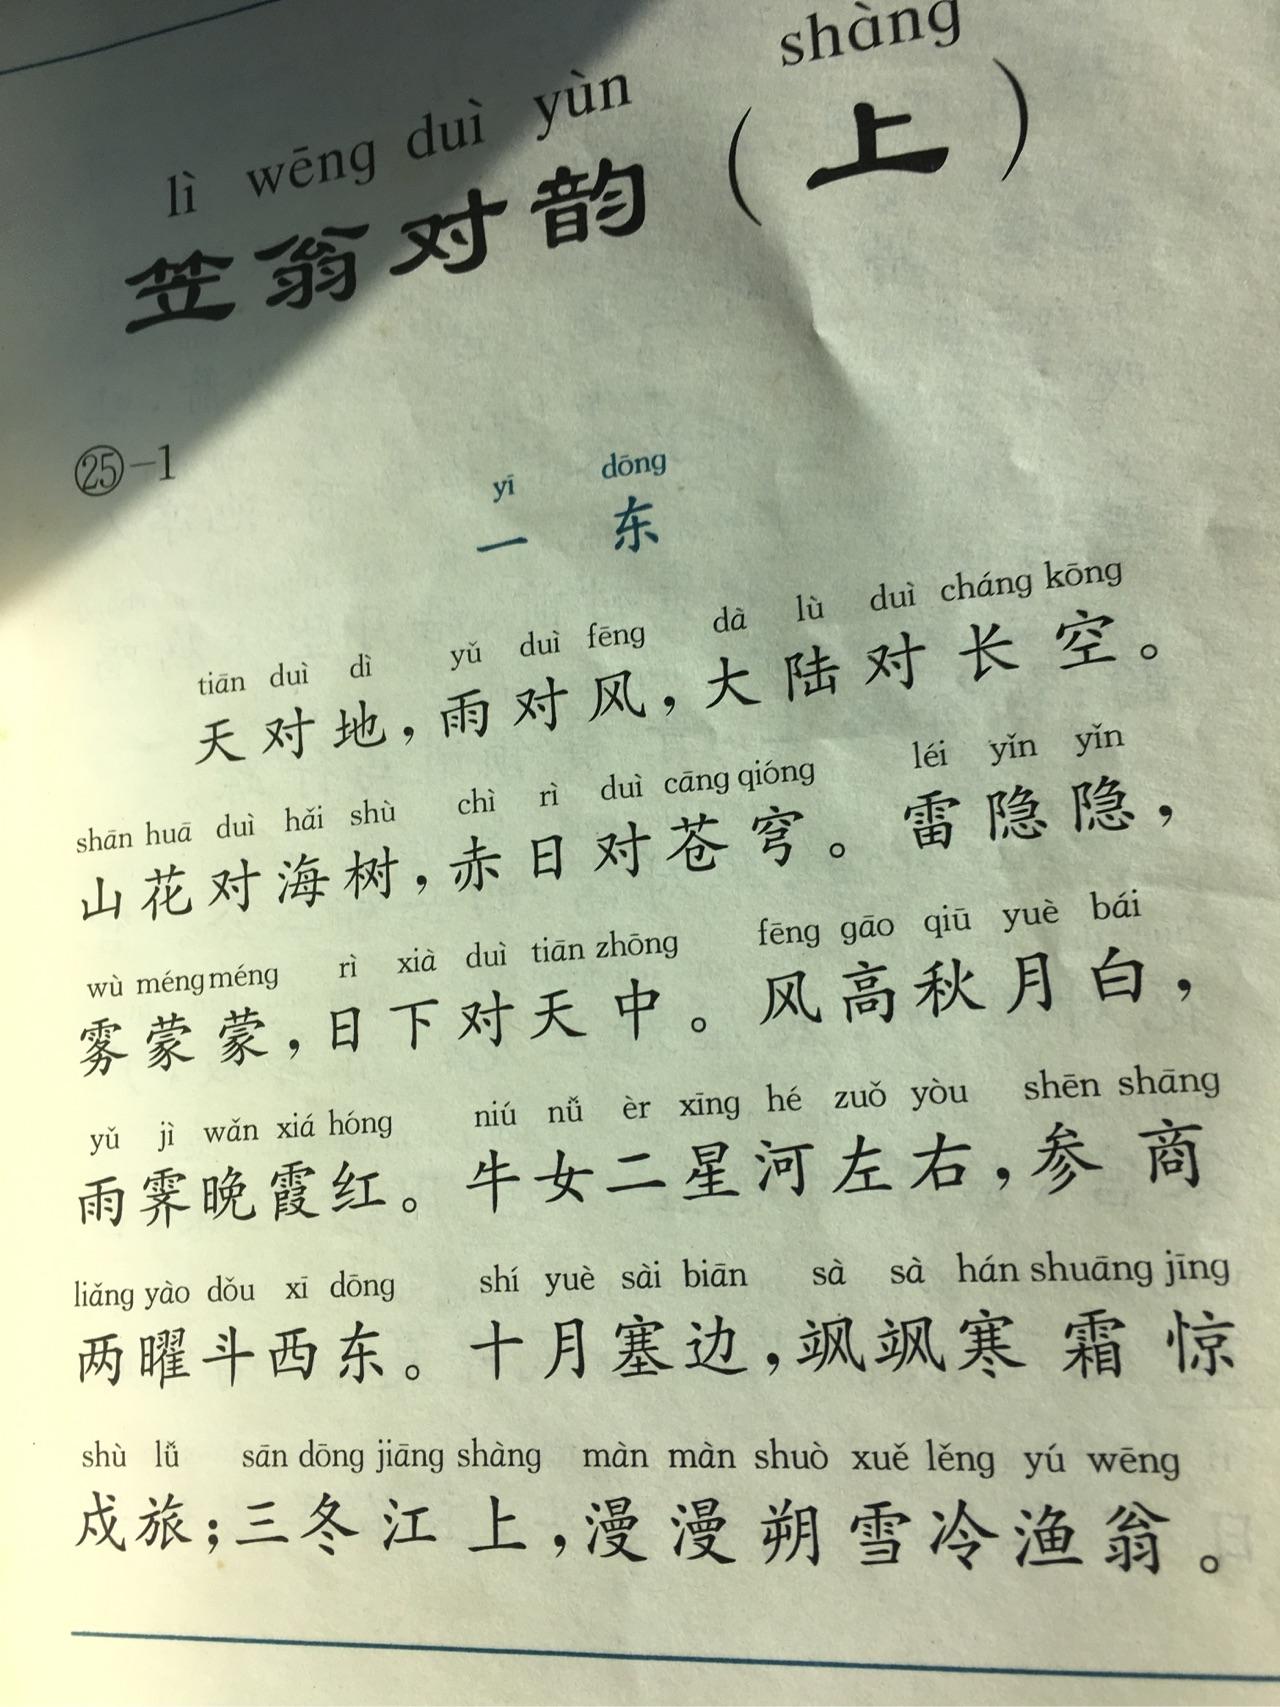 lì wēng duì yùn shàng
笠翁对韵（上）
㉕-1
yī dōng
一 东
tiān duì dì yǔ duì fēng dà lù duì cháng kōng
天对地，雨对风，大陆对长空。
shān huā duì hǎi shù chì rì duì cāng qióng léi yǐn yǐn
山花对海树，赤日对苍穹。雷隐隐，
wù méng méng rì xià duì tiān zhōng fēng gāo qiū yuè bái
雾蒙蒙，日下对天中。风高秋月白，
yǔ jì wǎn xiá hóng niú nǚ èr xīng hé zuǒ yòu shēn shāng
雨霁晚霞红。牛女二星河左右，参商
liǎng yào dǒu xī dōng shí yuè sài biān sà sà hán shuāng jīng
两曜斗西东。十月塞边，飒飒寒霜惊
shù lǚ sān dōng jiāng shàng màn màn shuò xuě lěng yú wēng
戍旅；三冬江上，漫漫朔雪冷渔翁。